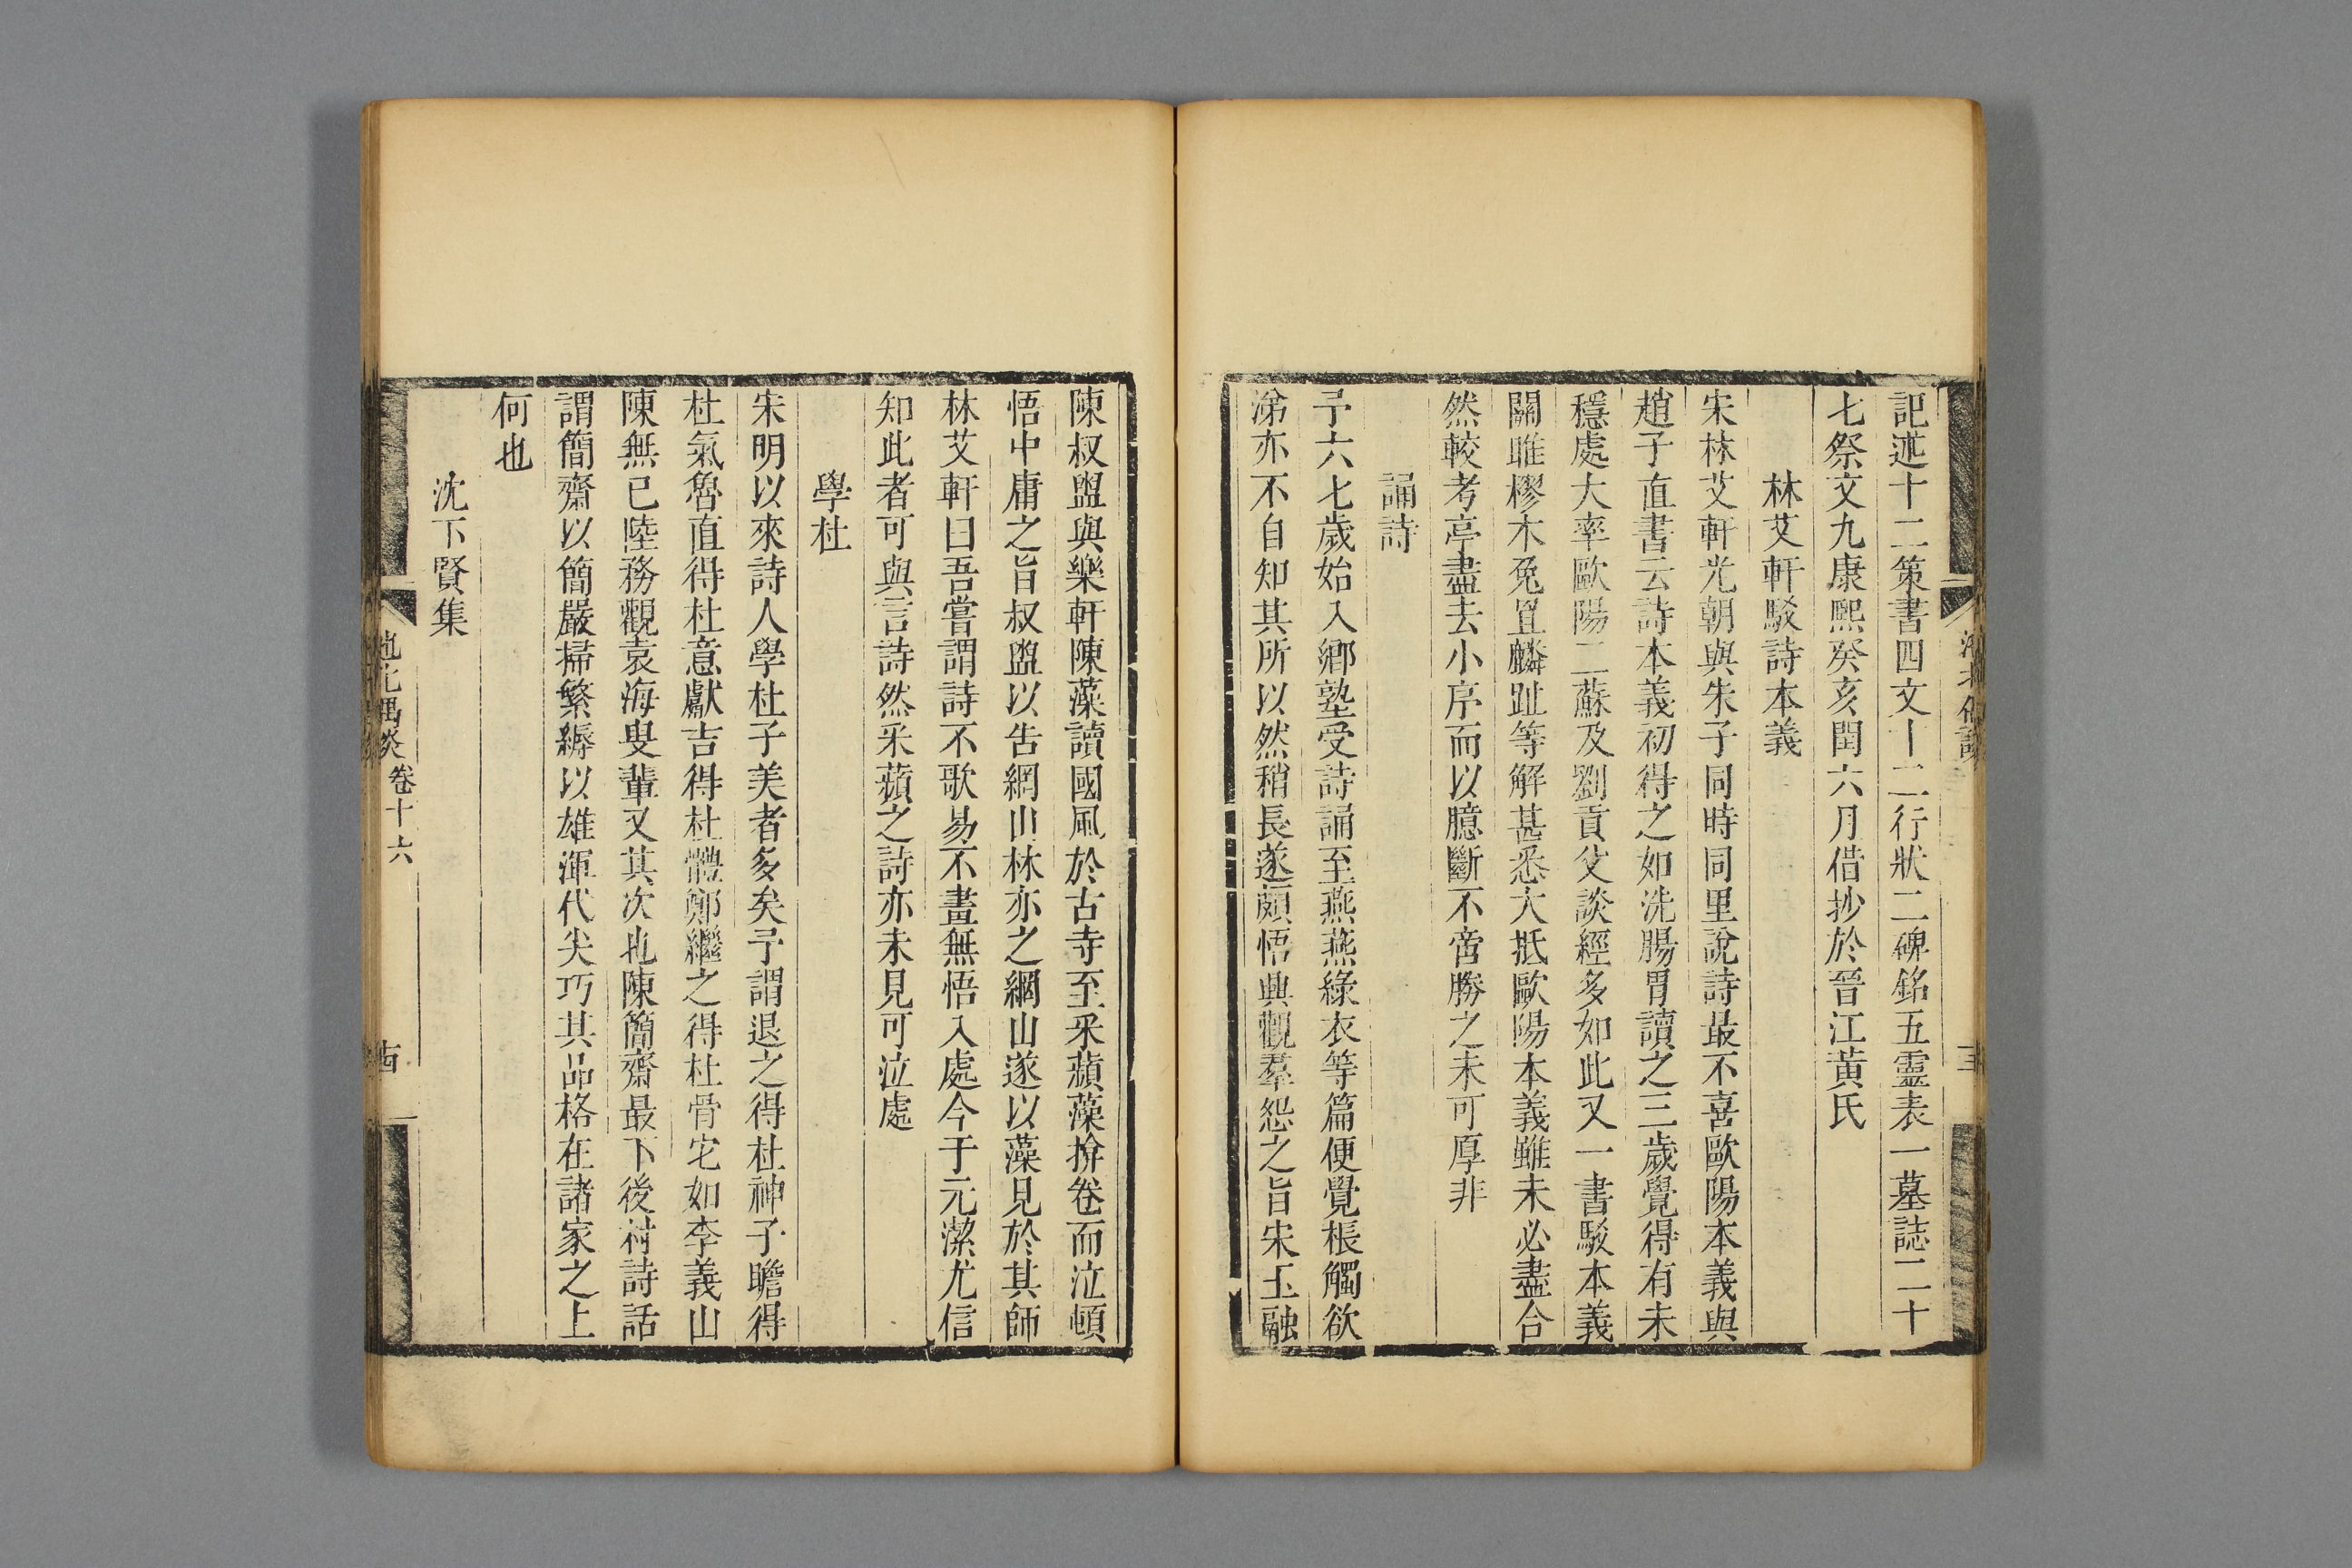 記述十二策書四文十二行狀二碑銘五靈表一墓誌二十
七祭文九康熙癸亥閏六月借抄於晉江黃氏
林艾軒駁詩本義
宋林艾軒光朝與朱子同時同里說詩最不喜歐陽本義與
趙子直書云詩本義初得之如洗腸胃讀之三歲覺得有未
穩處大率歐陽二蘇及劉貢父談經多如此又一書駁本義
關雎樛木兔罝麟趾等解甚悉大抵歐陽本義雖未必盡合
然較考亭盡去小序而以臆斷不啻勝之未可厚非
誦詩
予六七歲始入鄉塾受詩誦至燕燕綠衣等篇便覺棖觸欲
涕亦不自知其所以然稍長遂頗悟興觀羣怨之旨宋玉融
陳叔盥與樂軒陳藻讀國風於古寺至采蘋藻揜卷而泣頓
悟中庸之旨叔盥以告網山林亦之網山遂以藻見於其師
林艾軒曰吾嘗謂詩不歌易不畫無悟入處今于元潔尤信
知此者可與言詩然采蘋之詩亦未見可泣處
學杜
宋明以來詩人學杜子美者多矣予謂退之得杜神子瞻得
杜氣魯直得杜意獻吉得杜體鄭繼之得杜骨它如李義山
陳無已陸務觀袁海叟輩又其次也陳簡齋最下後村詩話
謂簡齋以簡嚴掃繁縟以雄渾代尖巧其品格在諸家之上
何也
沈下賢集
池北偶談 卷十六